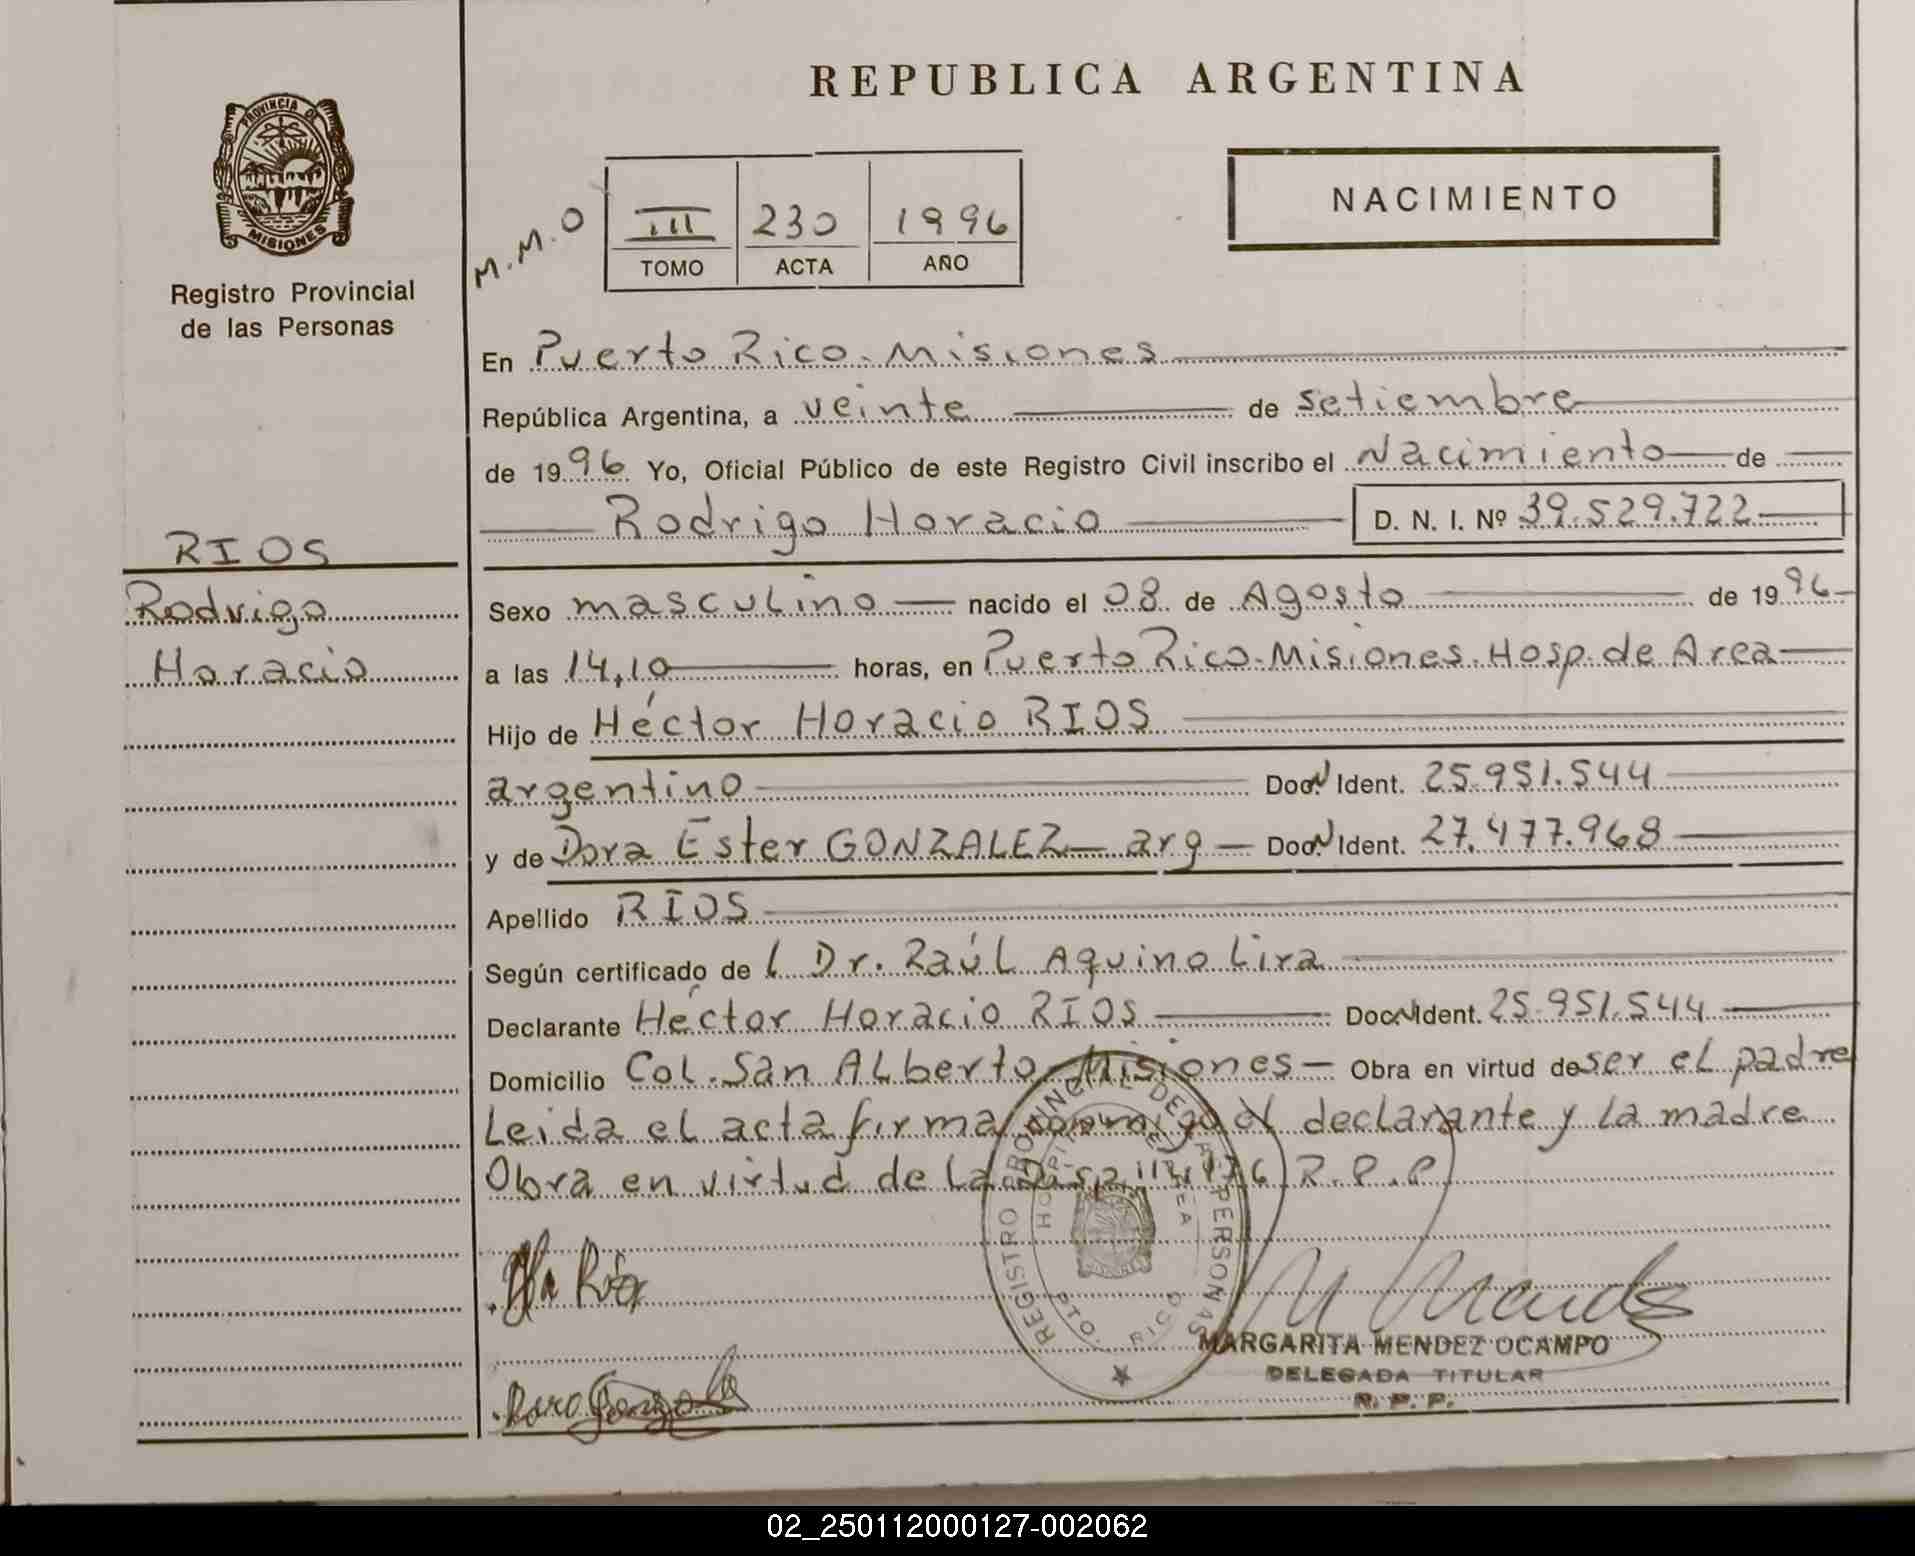 REPUBLICA ARGENTINA
PROVINCIA DE
MISIONES
Registro Provincial
de las Personas
NACIMIENTO
M.M.O
III 230 1996
TOMO ACTA AÑO
En Puerto Rico.Misiones
República Argentina, a veinte de setiembre
de 1996 Yo, Oficial Público de este Registro Civil inscribo el Nacimiento de
Rodrigo Horacio D. N. I. Nº 39.529.722
RIOS
Rodrigo
Horacio
Sexo masculino nacido el 08 de Agosto de 1996
a las 14,10 horas, en Puerto Rico.Misiones.Hosp.de Area
Hijo de Héctor Horacio RIOS
argentino Doc.N Ident. 25.951.544
y de Dora Ester GONZALEZ arg Doc.N Ident. 27.477.968
Apellido RIOS
Según certificado de l Dr. Raúl Aquino Lira
Declarante Héctor Horacio RIOS Doc.N Ident. 25.951.544
Domicilio Col. San Alberto Misiones Obra en virtud de ser el padre
Leida el acta firma conmigo el declarante y la madre
Obra en virtud de la Disp. R.P.P
REGISTRO PROVINCIAL DE LAS PERSONAS
PTO. RICO
MARGARITA MENDEZ OCAMPO
DELEGADA TITULAR
R. P. P.
02_250112000127-002062